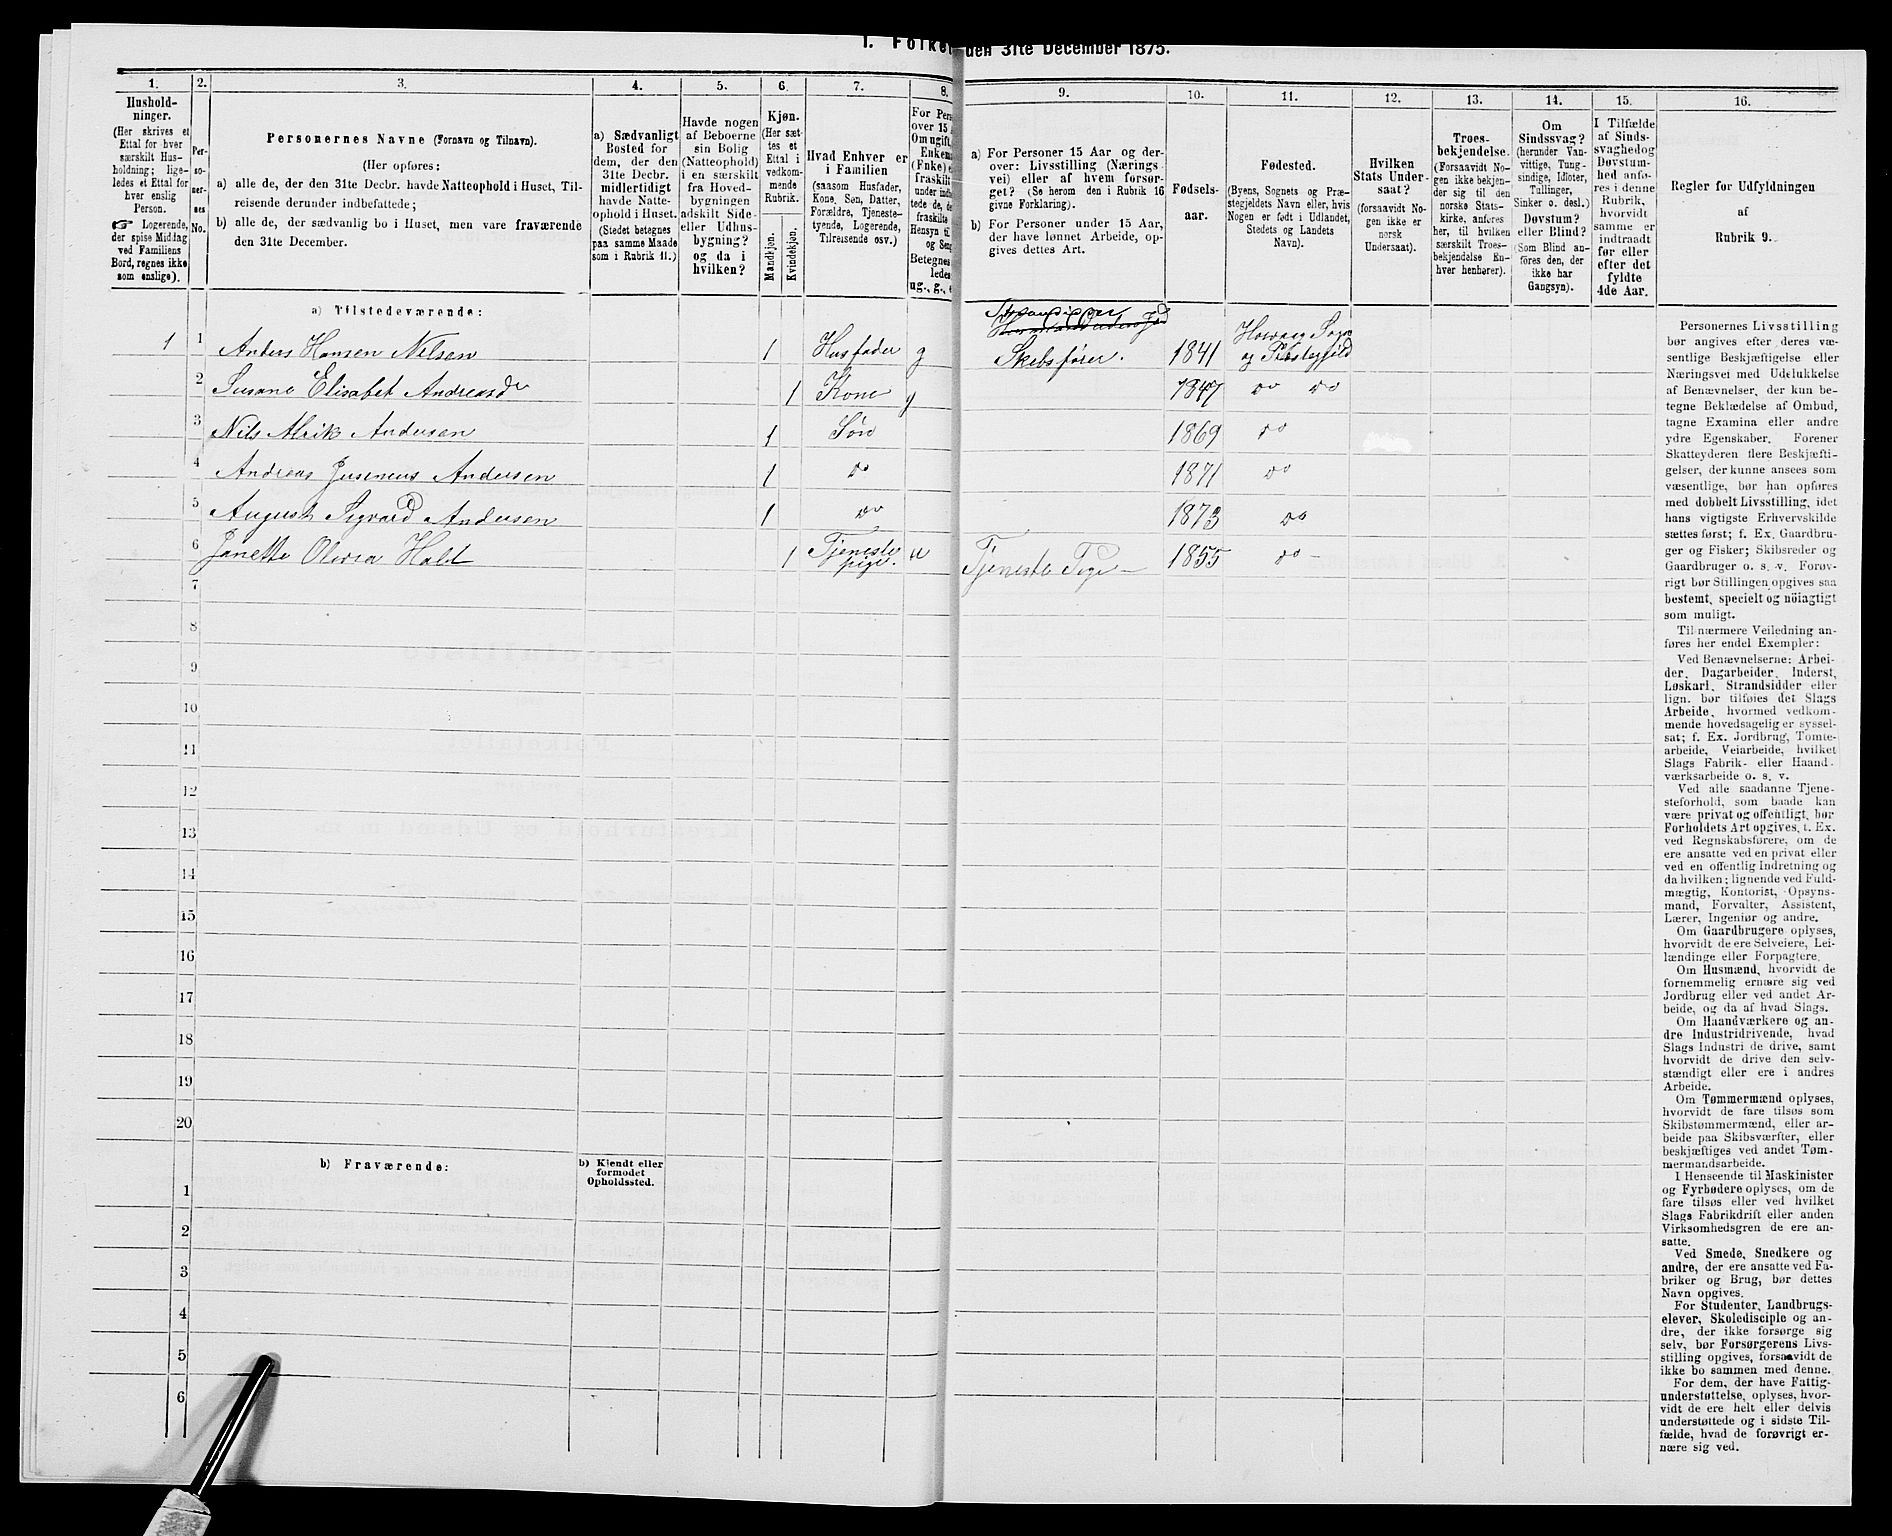 1. Folke den 31te December 1875.
1.
Hushold-
ninger.
(Her skrives et
Ettal for hver
særskilt Hus-
holdning; lige-
ledes et Ettal for
hver enslig
Person.
☞ Logerende,
der spise Middag
ved Familiens
Bord, regnes ikke
som enslige).
2.
Per-
so-
ner-
nes
No.
3.
Personernes Navne (Fornavn og Tilnavn).
(Her opføres:
a) alle de, der den 31te Decbr. havde Natteophold i Huset, Til-
reisende derunder indbefattede;
b) alle de, der sædvanlig bo i Huset, men vare fraværende
den 31te December.
4.
a) Sædvanligt
Bosted for
dem, der den
31te Decbr.
midlertidigt
havde Natte-
ophold i Huset.
(Stedet betegnes
paa samme Maade
som i Rubrik 11.)
5.
Havde nogen
af Beboerne
sin Bolig
(Natteophold)
i en særskilt
fra Hoved-
bygningen
adskilt Side-
eller Udhus-
bygning?
og da i
hvilken?
6.
Kjøn.
(Her sæt-
tes et
Ettal i
vedkom-
mende
Rubrik.
Mandkjøn.
Kvindekjøn.
7.
Hvad Enhver er
i Familien
(saasom Husfader,
Kone, Søn, Datter,
Forældre, Tjeneste-
tyende, Logerende,
Tilreisende osv.)
8.
For Pers
over 15
Om ugift,
Enkem
(Enke)
fraskilt
under ind
tede de, d
fraskilte
Hensyn ti
og Sen
Betegnes
ledes
ug., g., e
9.
a) For Personer 15 Aar og der-
over: Livsstilling (Nærings
vei) eller af hvem forsør-
get? (Se herom den i Rubrik 16
givne Forklaring).
b) For Personer under 15 Aar,
der have lønnet Arbeide, op-
gives dettes Art.
10.
Fødsels-
aar.
11.
Fødested.
(Byens, Sognets og Præ-
stegjeldets Navn eller, hvis
Nogen er født i Udlandet,
Stedets og Landets
Navn).
12.
Hvilken
Stats Under-
saat?
(forsaavidt No-
gen ikke er
norsk
Undersaat).
13.
Troes-
bekjendelse.
(Forsaavidt No-
gen ikke bekjen-
der sig til den
norske Stats-
kirke, anføres
her, til hvilken
særskilt Troes-
bekjendelse En-
hver henhører).
14.
Om
Sindssvag?
(herunder Van-
vittige, Tung-
sindige, Idioter,
Tullinger,
Sinker o. desl.)
Døvstum?
eller Blind?
(Som Blind an-
føres den, der
ikke har
Gangsyn).
15.
I Tilfælde
af Sinds-
svaghed og
Døvstum-
hed anfø-
res i denne
Rubrik,
hvorvidt
samme er
indtraadt
før eller
efter det
fyldte
4de Aar.
16.
Regler for Udfyldningen
af
Rubrik 9.
a) Tilstedeværende:
1 1 Anders Hansen Nilsen 1 Husfader g Skibsfører. 1841 Sogn og Præstegjeld
2 Susane Elisabet Andreasdr 1 Kone g 1847 do do
3 Nils Alrik Andersen 1 Søn 1869 do
4 Andreas Jusenius Andersen 1 do 1871 do
5 August Sigvard Andersen 1 do 1873 do
6 Janette Olivia Holt 1 Tjeneste pige. u Tjeneste Pige 1855 do
7
8
9
10
11
12
13
14
15
16
17
18
19
20
b) Fraværende:
b) Kjendt eller
formodet
Opholdssted.
1
2
3
4
5
6
Personernes Livsstilling
bør angives efter deres væ-
sentlige Beskjæftigelse eller
Næringsvei med Udelukkelse
af Benævnelser, der kun be-
tegne Beklædelse af Ombud,
tagne Examina eller andre
ydre Egenskaber. Forener
Skatteyderen flere Beskjæfti-
gelser, der kunne ansees som
væsentlige, bør han opføres
med dobbelt Livsstilling, idet
hans vigtigste Erhvervskilde
sættes først; f. Ex. Gaardbru-
ger og Fisker; Skibsreder og
Gaardbruger o. s. v. Forøv-
rigt bør Stillingen opgives saa
bestemt, specielt og nöiagtigt
som muligt.
Til nærmere Veiledning an-
føres her endel Exempler:
Ved Benævnelserne: Arbei-
der, Dagarbeider, Inderst,
Løskarl, Strandsidder eller
lign. bør tilføies det Slags
Arbeide, hvormed vedkom-
mende hovedsagelig er syssel-
sat; f. Ex. Jordbrug, Tomte-
arbeide, Veiarbeide, hvilket
Slags Fabrik- eller Haand-
værksarbeide o. s. v.
Ved alle saadanne Tjene-
steforhold, som baade kan
være privat og offentligt, bør
Forholdets Art opgives, t. Ex.
ved Regnskabsførere, om de
ere ansatte ved en privat eller
ved en offentlig Indretning og
da hvilken; lignende ved Fuld-
mægtig, Kontorist, Opsyns-
mand, Forvalter, Assistent,
Lærer, Ingeniør og andre.
Om Gaardbrugere oplyses,
hvorvidt de ere Selveiere, Lei-
lændinge eller Forpagtere.
Om Husmænd, hvorvidt de
fornemmelig ernære sig ved
Jordbrug eller ved andet Ar-
beide, og da af hvad Slags.
Om Haandværkere og an-
dre Industridrivende, hvad
Slags Industri de drive, samt
hvorvidt de drive den selv-
stændigt eller ere i andres
Arbeide.
Om Tømmermænd oplyses,
hvorvidt de fare tilsøs som
Skibstømmermænd, eller ar-
beide paa Skibsværfter, eller
beskjæftiges ved andet Tøm-
mermandsarbeide.
I Henseende til Maskinister
og Fyrbødere oplyses, om de
fare tilsøs eller ved hvilket
Slags Fabrikdrift eller anden
Virksomhedsgren de ere an-
satte.
Ved Smede, Snedkere og
andre, der ere ansatte ved Fa-
briker og Brug, bør dettes
Navn opgives.
For Studenter, Landbrugs-
elever, Skoledisciple og an-
dre, der ikke forsørge sig
selv, bør Forsørgerens Livs-
stilling opgives, forsaavidt de
ikke bo sammen med denne.
For dem, der have Fattig-
understøttelse, oplyses, hvor-
vidt de ere helt eller delvis
understøttede og i sidste Til-
fælde, hvad de forøvrigt er-
nære sig ved.